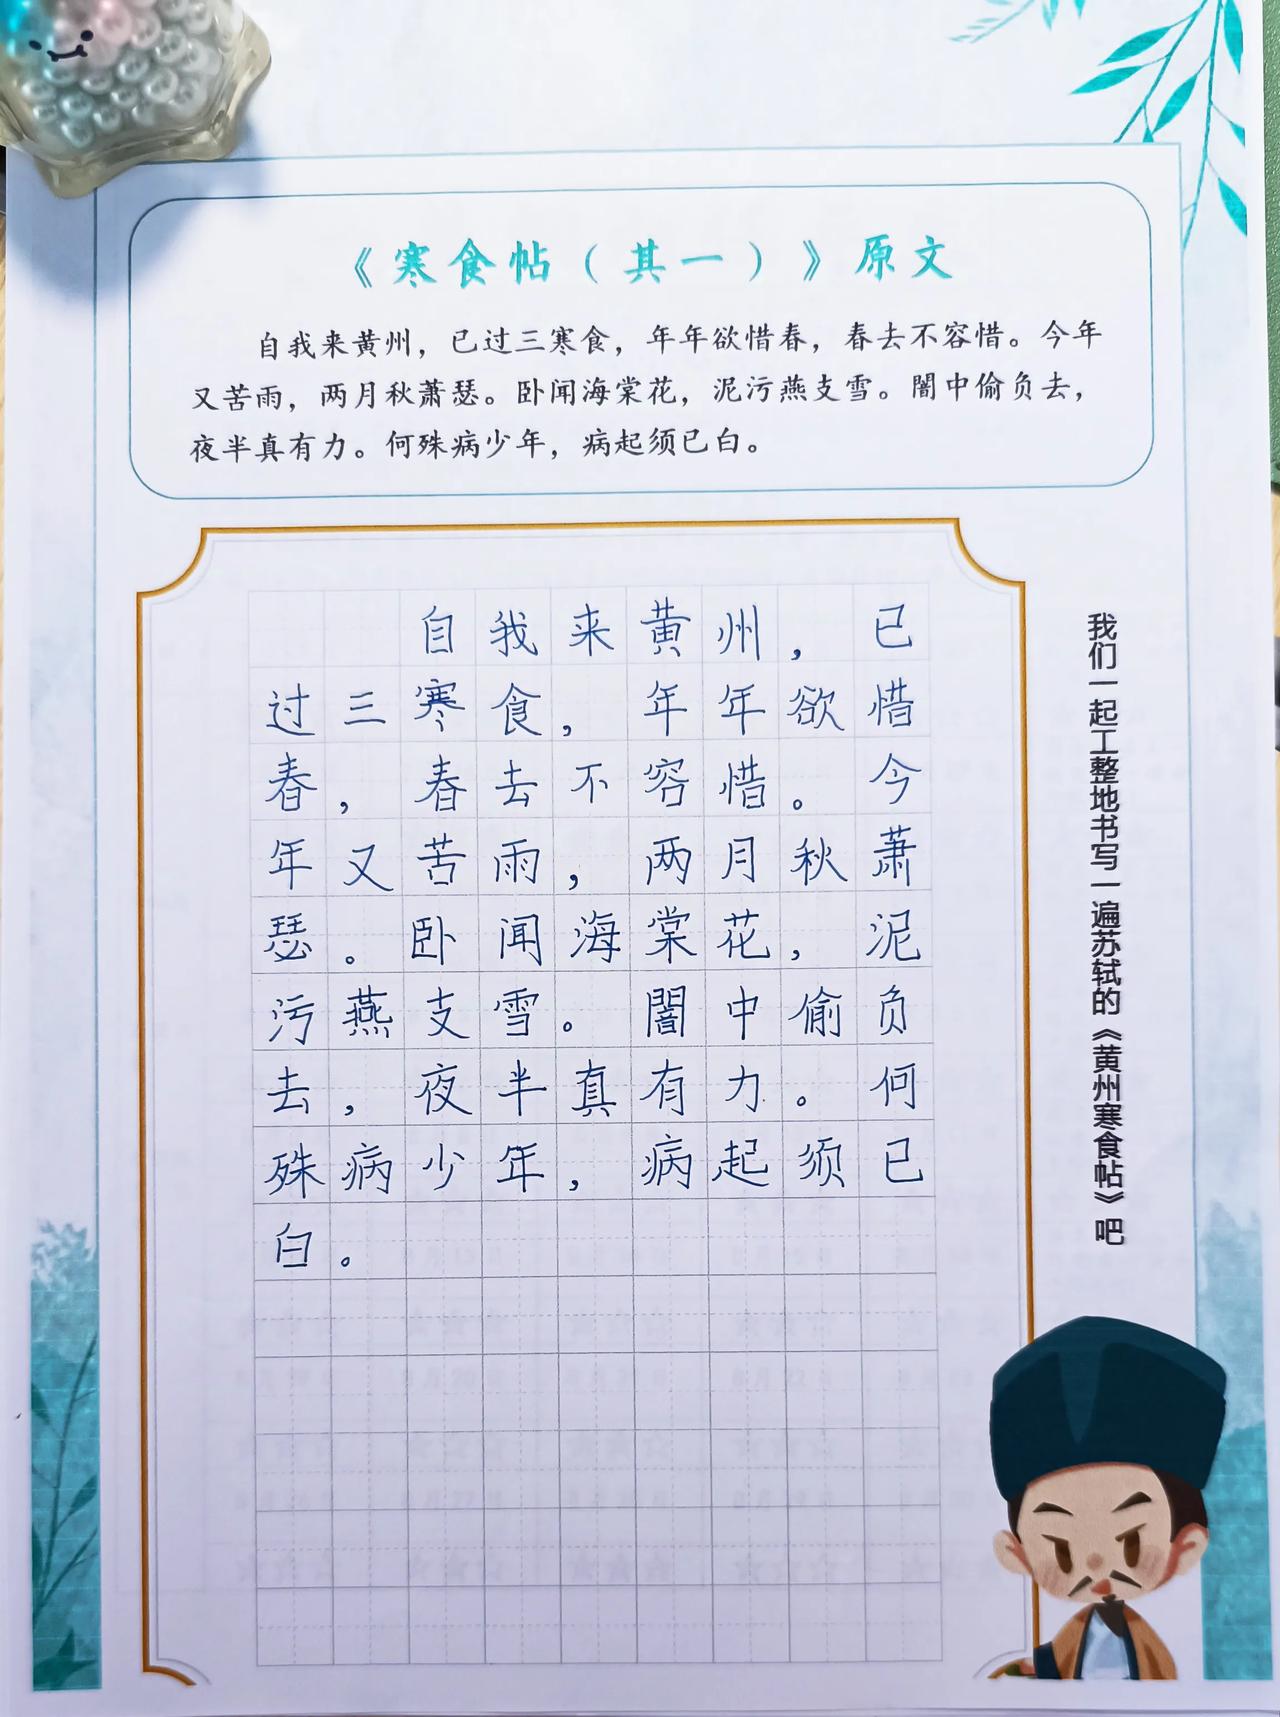 《寒食帖（其一）》原文
自我来黄州，已过三寒食，年年欲惜春，春去不容惜。今年
又苦雨，两月秋萧瑟。卧闻海棠花，泥污燕支雪。闇中偷负去，
夜半真有力。何殊病少年，病起须已白。
自我来黄州，已
过三寒食，年年欲惜
春，春去不容惜。今
年又苦雨，两月秋萧
瑟。卧闻海棠花，泥
污燕支雪。闇中偷负
去，夜半真有力。何
殊病少年，病起须已
白。
我们一起工整地书写一遍苏轼的《黄州寒食帖》吧